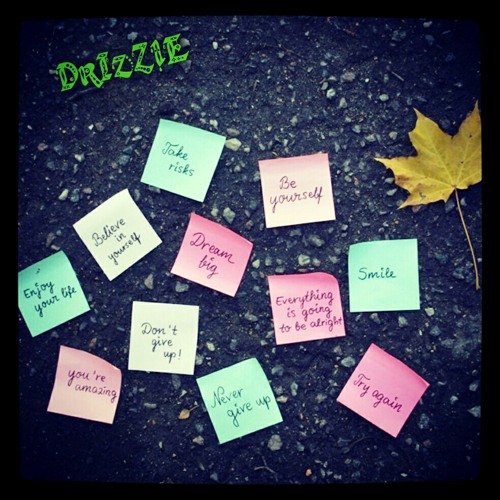 DRIZZIE
Take
risks
Be
yourself
Believe
in
yourself
Dream
big
Smile
Enjoy
your life
Everything
is going
to be alright
Don't
give
up!
you're
amazing
Never
give up
Try again